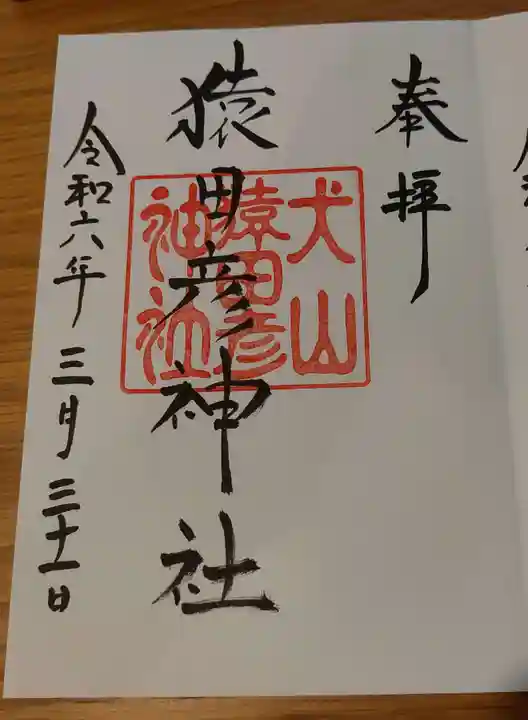 奉拝
犬山
猿田彦
神社
猿田彦神社
令和六年三月三十一日